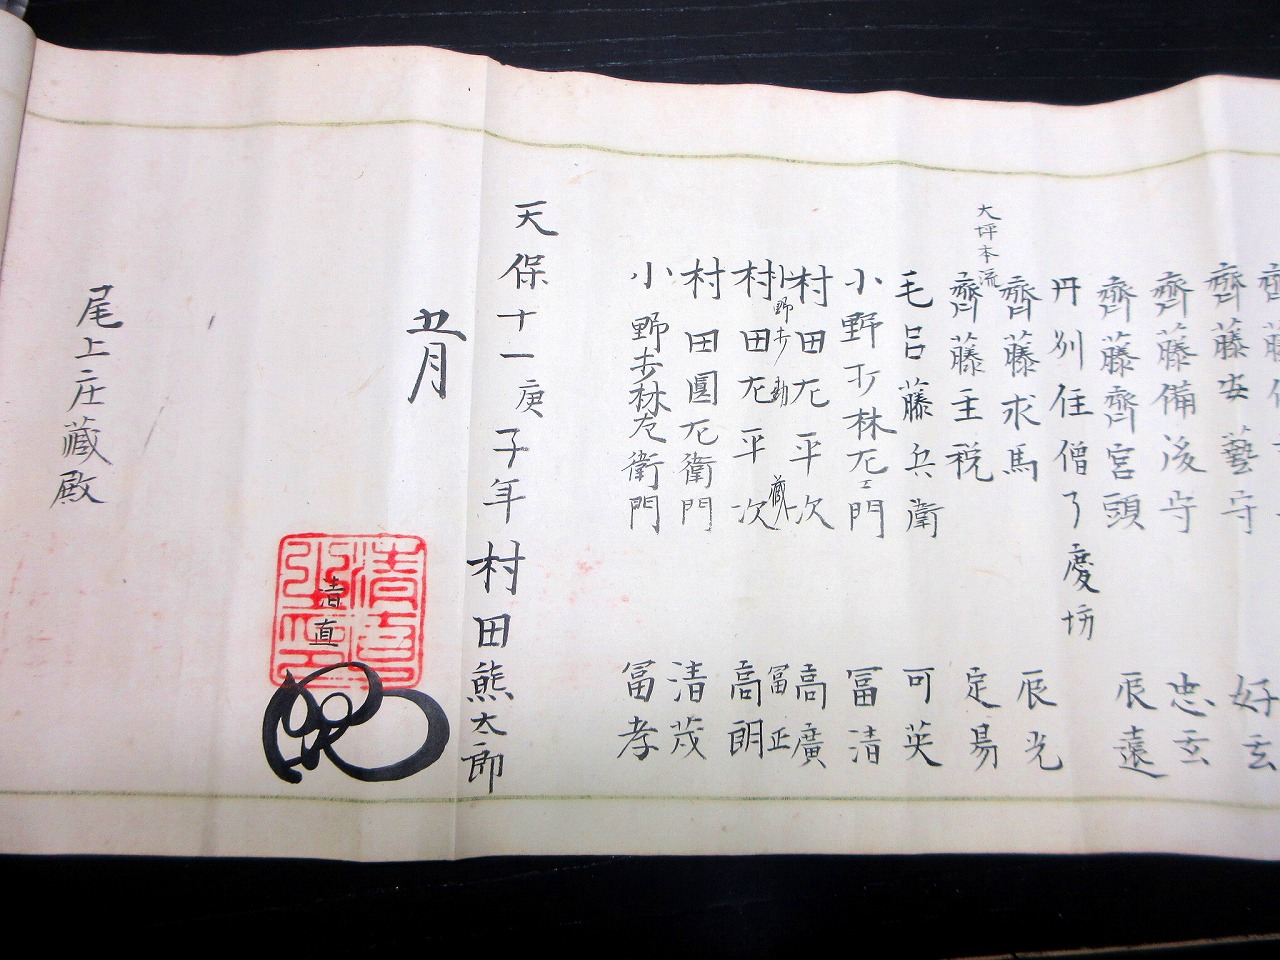 齊藤安藝守 好玄
齊藤備後守 忠玄
齊藤齊宮頭 辰遠
丹別住僧了慶坊
齊藤求馬 辰光
大坪本流
齊藤主税 定易
毛呂藤兵衛 可英
小野打林左衛門 冨清
村田左平次 高廣
小野歩勘藏 冨正
村田左平次 高朗
村田團左衛門 清茂
小野歩林左衛門 冨孝
天保十一庚子年 村田熊太郎
五月
清直
尾上庄藏殿